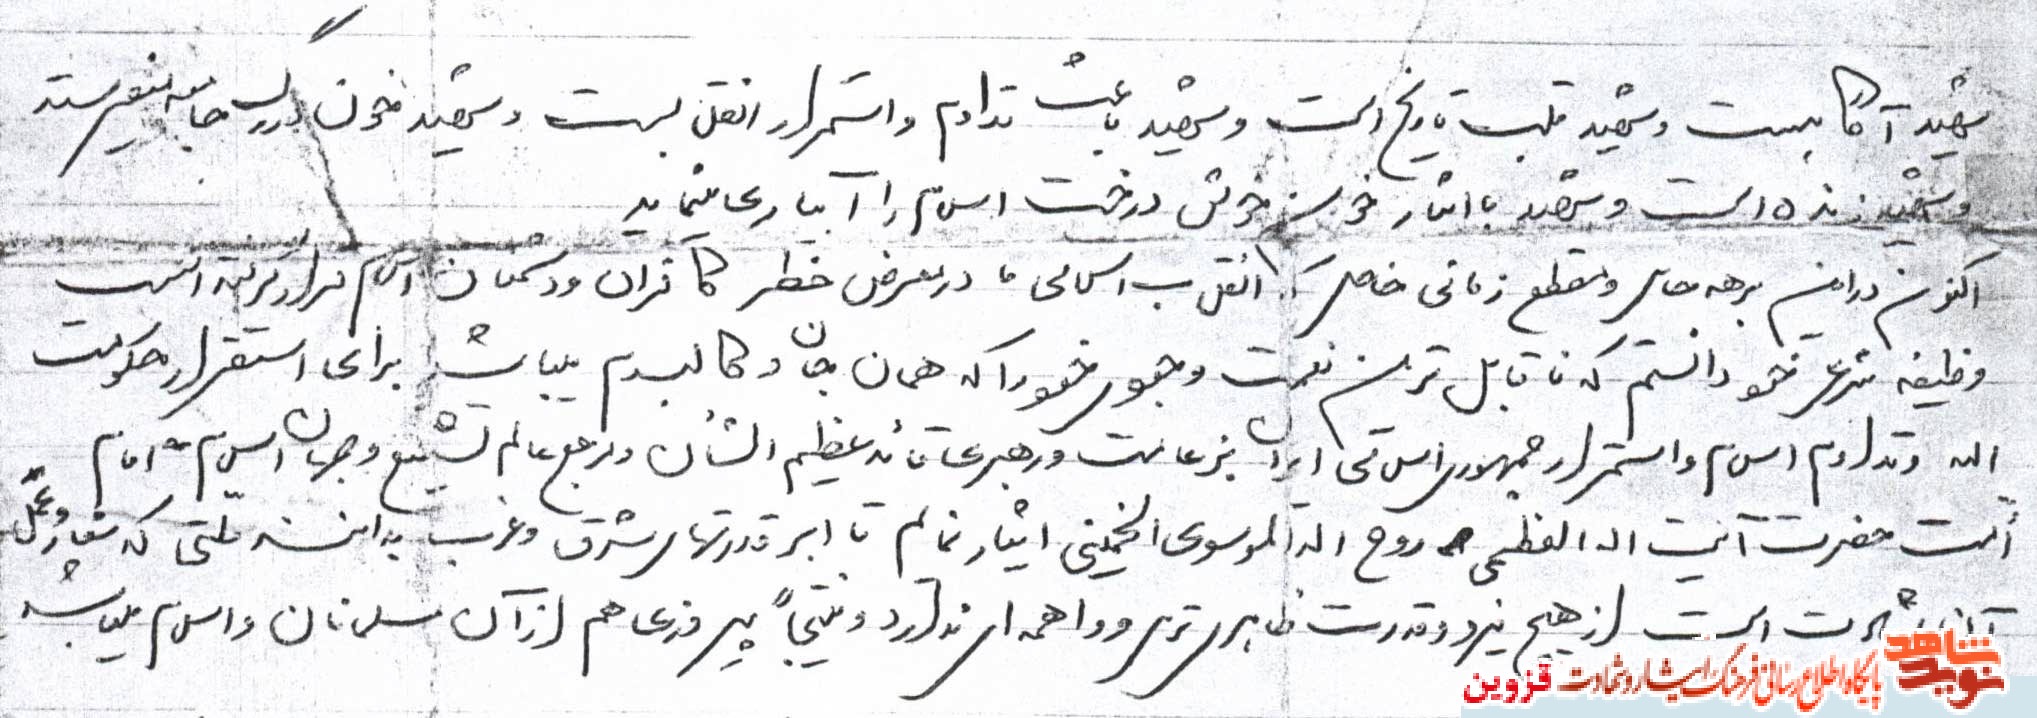 شهید آگاهست و شهید قلب تاریخ است و شهید باعث تداوم و استمرار انقلابست و شهید خون در رگ جامعه میفرستد
و شهید زنده است و شهید با ایثار خون خویش درخت اسلام را آبیاری مینماید
اکنون در این برهه خاص و مقطع زمانی خاص که انقلاب اسلامی ما در معرض خطر کافران و دشمنان اسلام قرار گرفته است
وظیفه شرعی خود دانستم که ناقابل ترین نعمت وجودی خود را که همان جان و کالبدم میباشد برای استقرار حکومت
الله و تداوم اسلام و استمرار جمهوری اسلامی ایران بزعامت و رهبری قائد عظیم الشأن و مرجع عالم تشیع و جهان اسلام امام
امت حضرت آیت اله العظمی روح اله الموسوی الخمینی ایثار نمایم تا ابر قدرتهای شرق و غرب بدانند ملتی که شعار و عمل
آنان شهادت است از هیچ نیرو و قدرت ظاهری ترس و واهمه ای ندارد و نتیجاً پیروزی هم از آن مسلمانان و اسلام میباشد
نوید شاهد
پایگاه اطلاع رسانی فرهنگ ایثار و شهادت قزوین